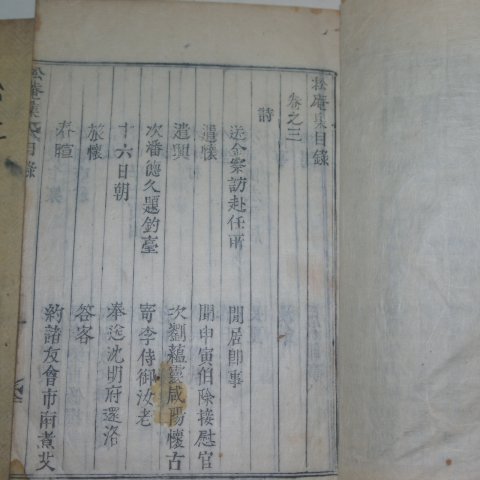 松庵集目錄
卷之三
詩
送金察訪赴任前
閒居卽事
遣懷
聞申寅伯除接慰官
遣興
次劉蘊靈咸陽懷古
次潘德久題釣臺
寄李侍御汝老
十六日朝
奉送沈明府還洛
旅懷
答客
春暄
約諸友會市南煮艾
松庵集 目錄